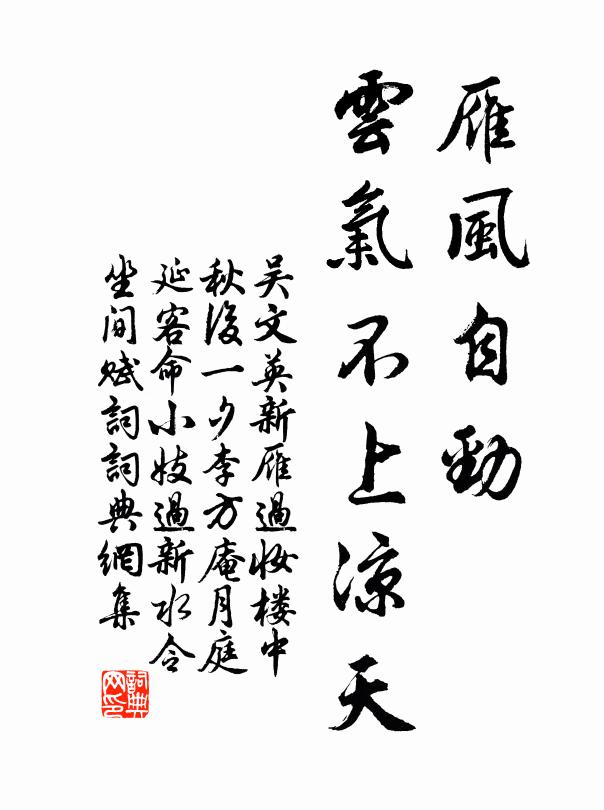 雁風自勁
雲氣不上涼天
吴文英新雁過妝楼中
秋後一夕李方庵月庭
延客命小妓過新水令
坐间赋詞詞典網集
詞典
网印